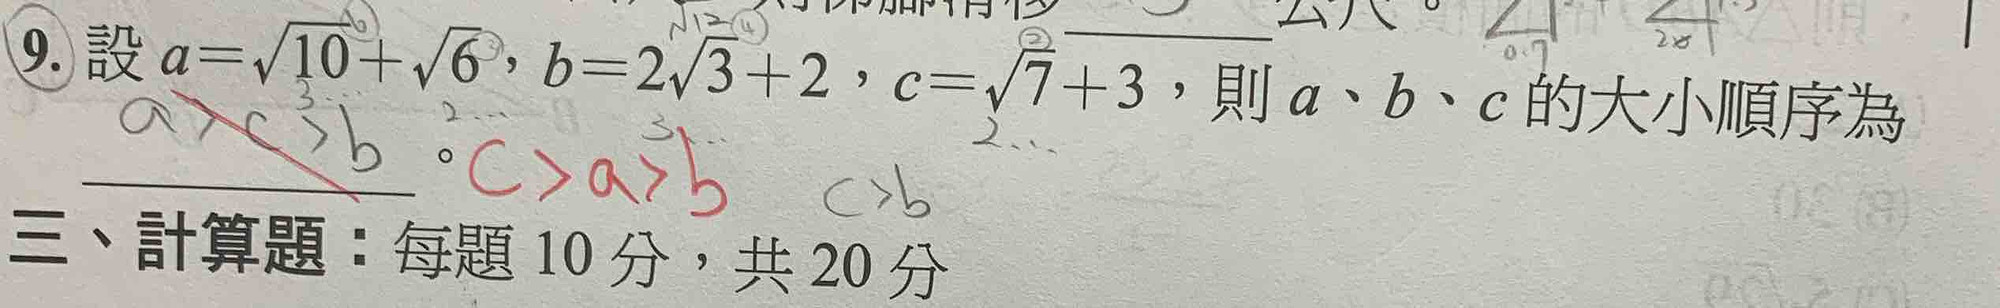 公尺。
9. 設 a=√10+√6,b=2√3+2,c=√7+3,則 a、b、c 的大小順序為
√12
3... 2... 3... 2...
a>c>b 。c>a>b c>b
三、計算題:每題 10 分,共 20 分